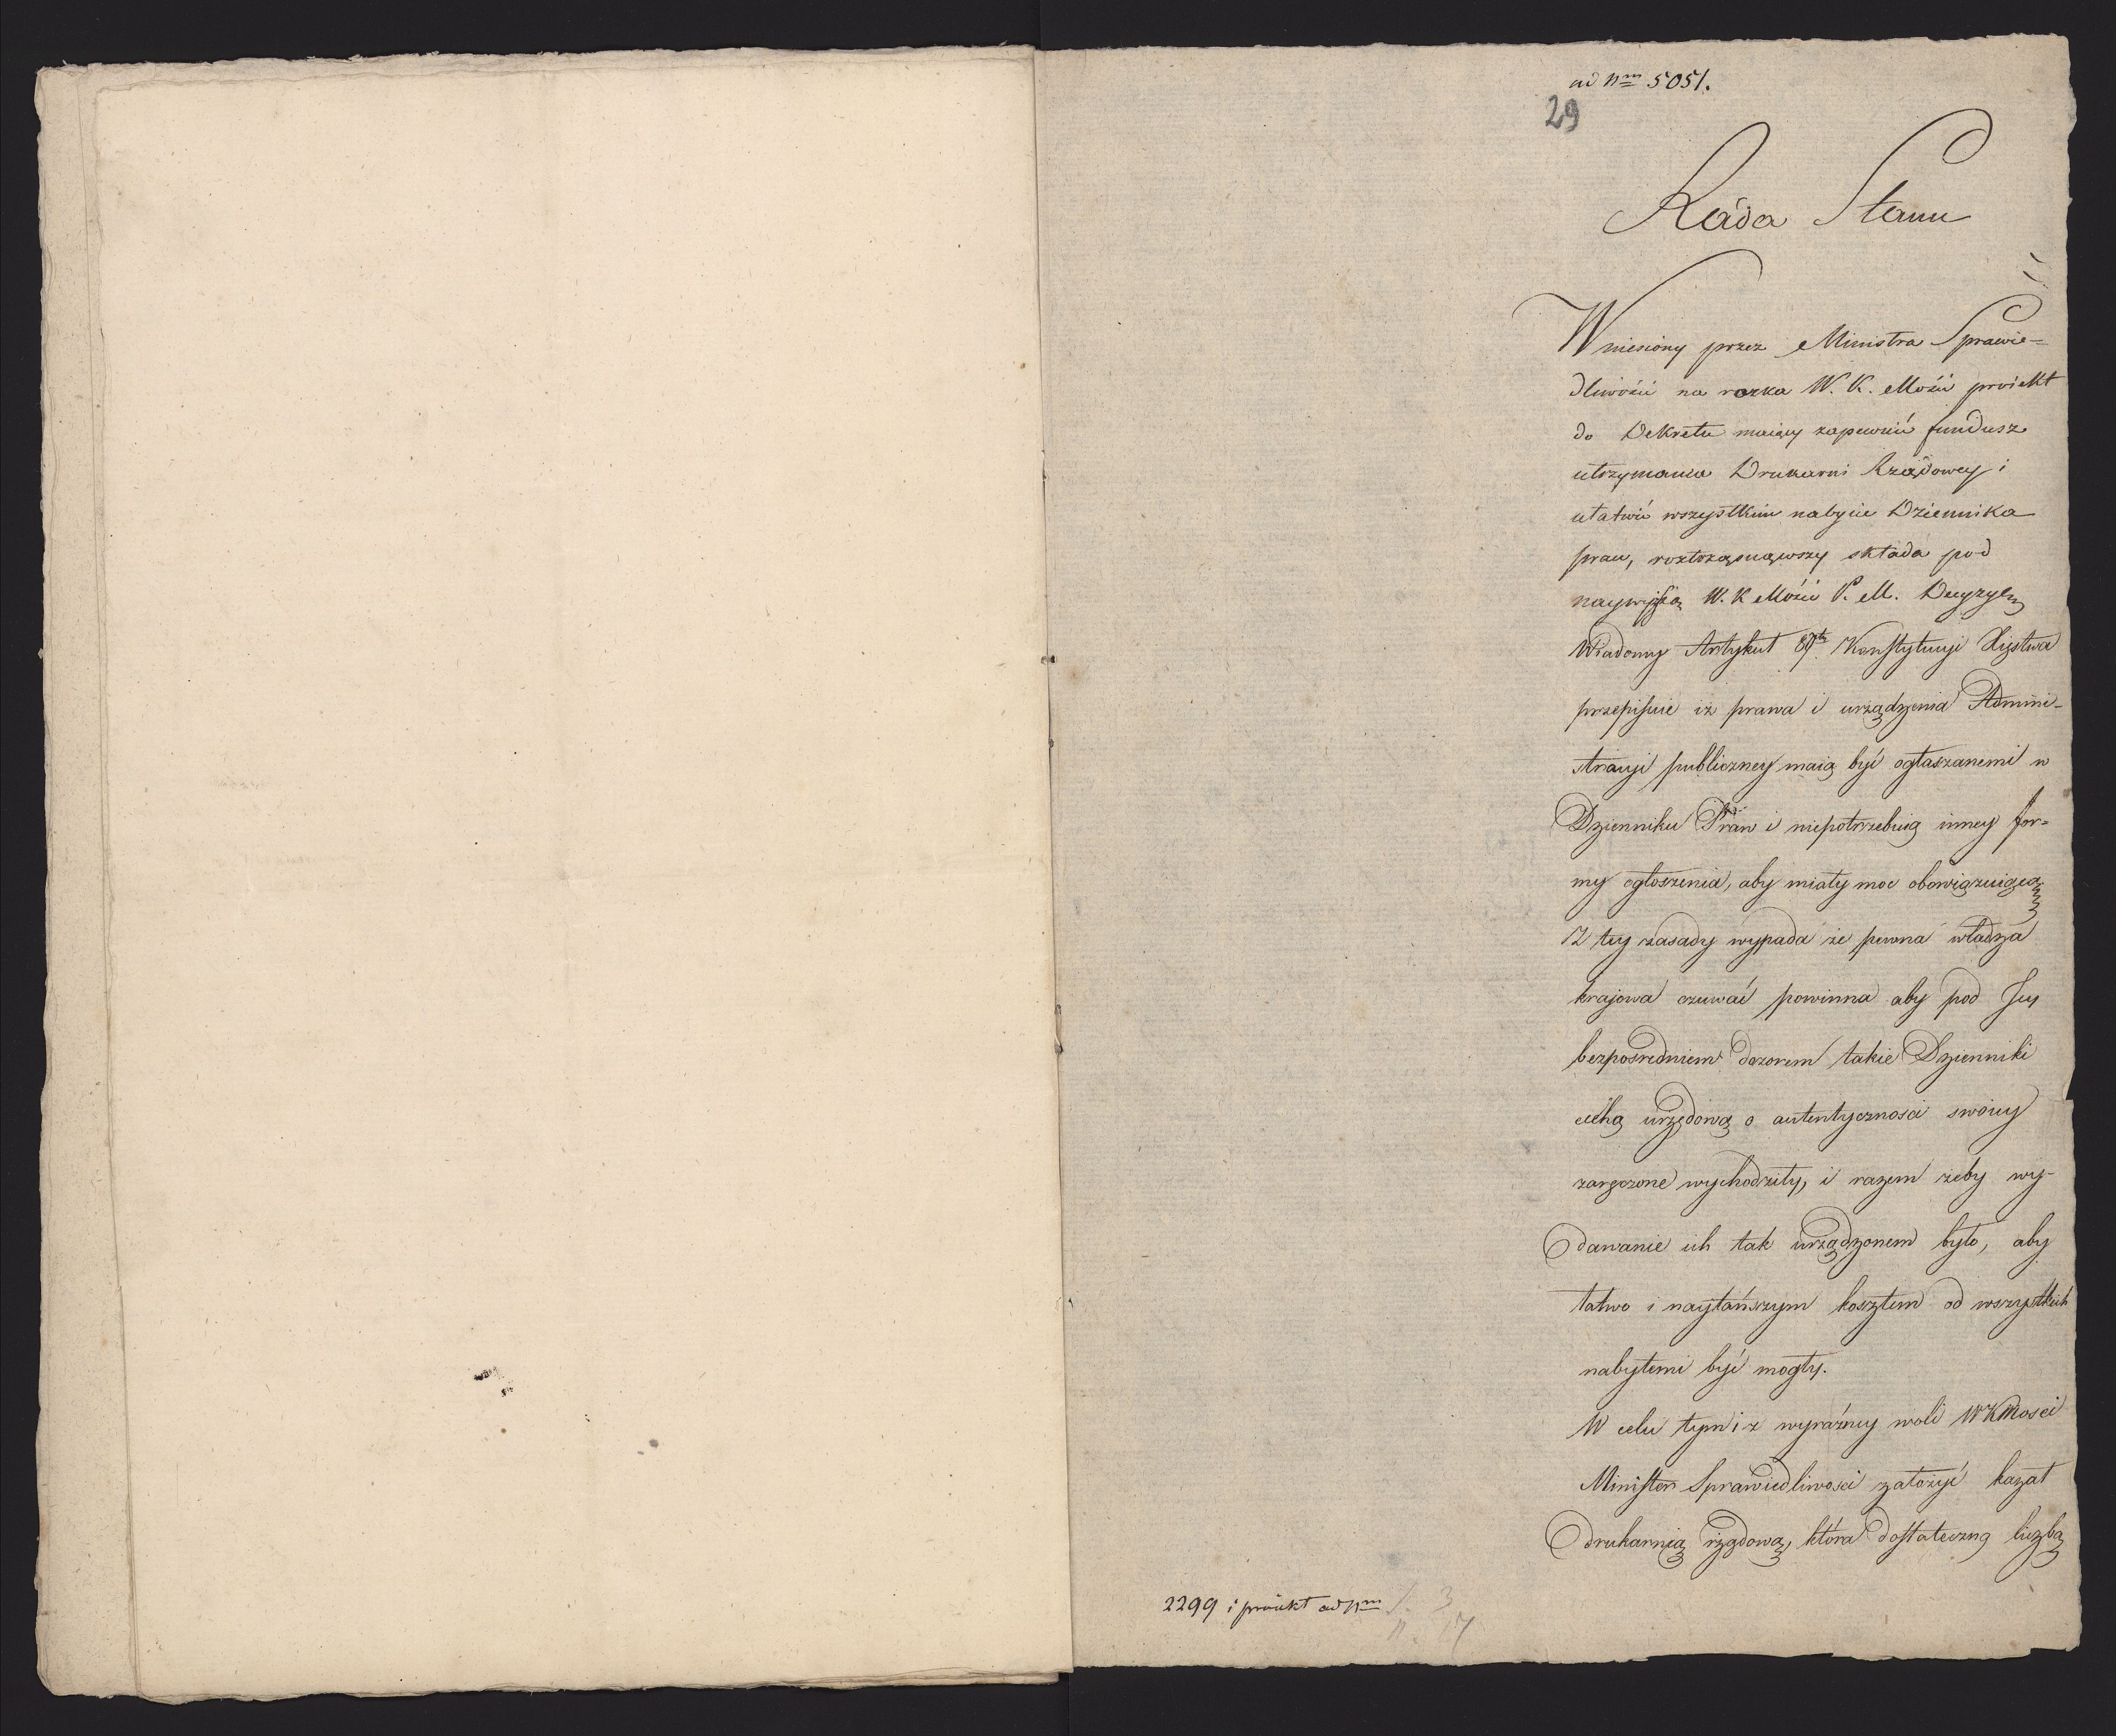 ad Nm 5051.
29
Rada Stanu
Wniesiony przez Ministra Sprawie=
dliwości na rozka W. K. Mości proiekt
do Dekretu maiący zapewnić fundusz
utrzymania Drukarni Rządowey i
ułatwić wszystkim nabycie Dziennika
praw, roztrząsnąwszy składa pod
naywyższą W. K Mości P. M. Decyzyą
Wiadomy Artykuł 89ty Konstytucyi Xięstwa
przepisuie iż prawa i urządzenia Admini-
stracyi publiczney maią być ogłaszanemi w
Dzienniku Praw i niepotrzebuią inney for=
my ogłoszenia, aby miały moc obowiązuiącą
Z tey zasady wypada że pewna władza
krajowa czuwać powinna aby pod Jey
bezpośredniem dozorem takie Dzienniki
cechą urzędową o autentyczności swoiey
zaręczone wychodziły, i razem żeby wy-
dawanie ich tak urządzonem było, aby
łatwo i naytańszym kosztem od wszystkich
nabytemi być mogły.
W celu tym i z wyraźney woli WKMości
Minister Sprawiedliwości założyć kazał
drukarnią rządową, która dostateczną liczbą
2299 i proiekt ad Nm